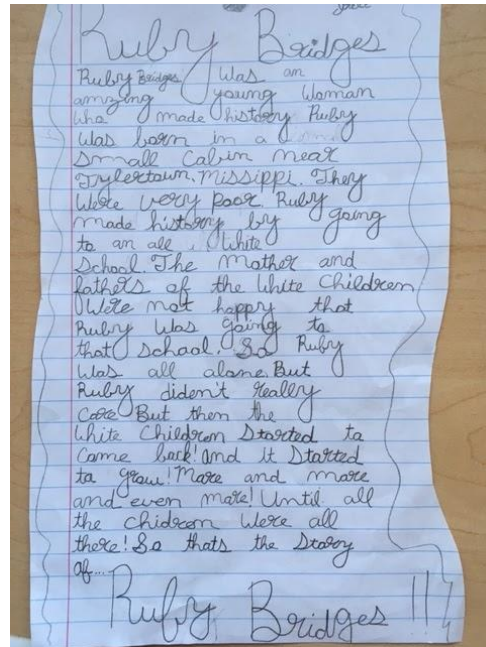 Ruby Bridges
Ruby Bridges Was an
amazing young Woman
who made history Ruby
Was born in a
Small Cabin near
Tylertown, Missippi. They
Were very poor. Ruby
made history by going
to an all White
School. The mother and
fathers of the White Children
Were not happy that
Ruby Was going to
that School. So Ruby
Was all alone. But
Ruby diden't really
Care But then the
White Children Started to
Come back! And it Started
to grow! More and more
and even more! Until all
the chidren Were all
there! So thats the Story
of...
Ruby Bridges !!!